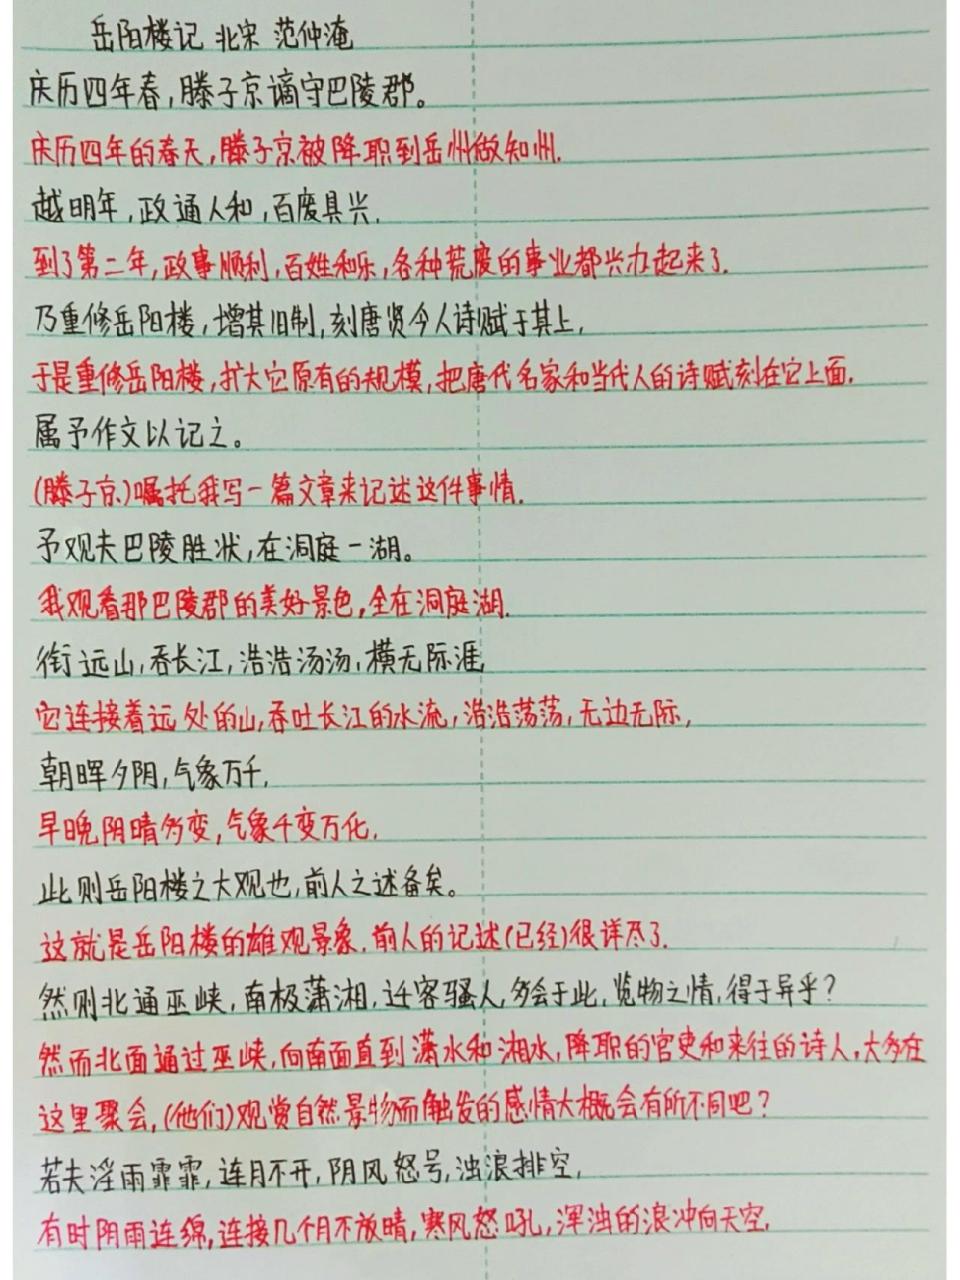 岳阳楼记 北宋 范仲淹
庆历四年春,滕子京谪守巴陵郡。
庆历四年的春天,滕子京被降职到岳州做知州.
越明年,政通人和,百废具兴.
到了第二年,政事顺利,百姓和乐,各种荒废的事业都兴办起来了.
乃重修岳阳楼,增其旧制,刻唐贤今人诗赋于其上,
于是重修岳阳楼,扩大它原有的规模,把唐代名家和当代人的诗赋刻在它上面.
属予作文以记之。
(滕子京)嘱托我写一篇文章来记述这件事情.
予观夫巴陵胜状,在洞庭一湖。
我观看那巴陵郡的美好景色,全在洞庭湖.
衔远山,吞长江,浩浩汤汤,横无际涯
它连接着远处的山,吞吐长江的水流,浩浩荡荡,无边无际,
朝晖夕阴,气象万千,
早晚阴晴多变,气象千变万化.
此则岳阳楼之大观也,前人之述备矣。
这就是岳阳楼的雄观景象.前人的记述(已经)很详尽了.
然则北通巫峡,南极潇湘,迁客骚人,多会于此,览物之情,得于异乎?
然而北面通过巫峡,向南面直到潇水和湘水,降职的官吏和来往的诗人,大多在
这里聚会,(他们)观赏自然景物而触发的感情大概会有所不同吧?
若夫淫雨霏霏,连月不开,阴风怒号,浊浪排空,
有时阴雨连绵,连接几个月不放晴,寒风怒吼,浑浊的浪冲向天空.